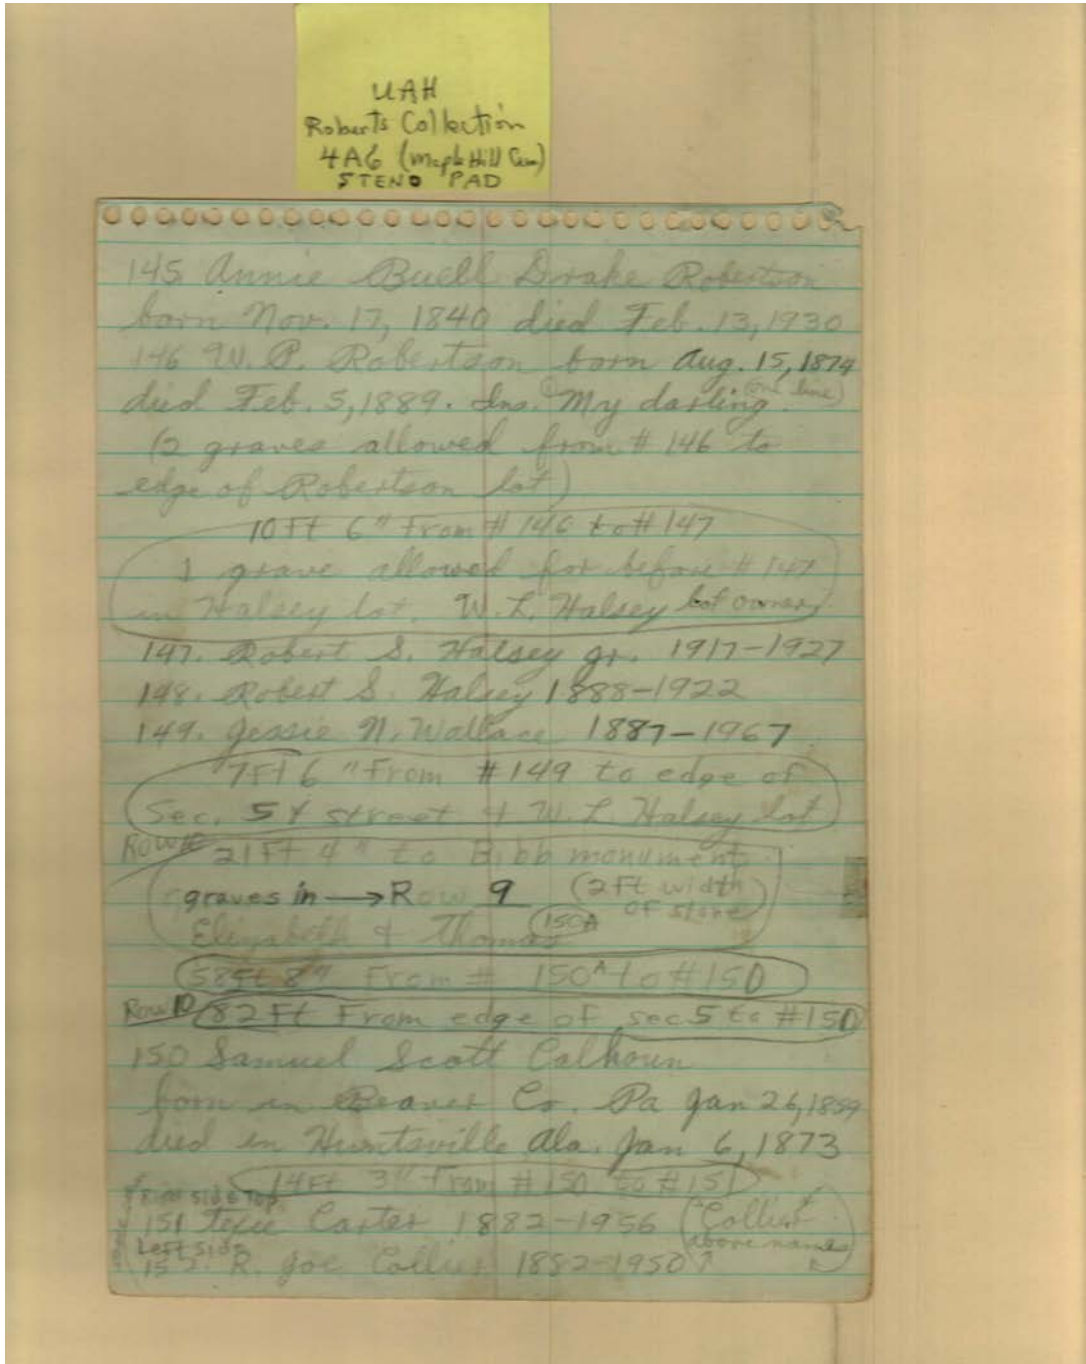 UAH
Roberts Collection
4A6 (Maple Hill Cem)
STENO PAD
145 Annie Buell Drake Robertson
born Nov. 17, 1840 died Feb. 13, 1930
146 W. P. Robertson born Aug. 15, 1874
died Feb. 5, 1889. Ins. "My darling. (one line)
(2 graves allowed from # 146 to
edge of Robertson lot)
10 Ft 6" From # 146 to # 147
1 grave allowed for before # 147
in Halsey lot. W. L. Halsey lot owner
147. Robert S. Halsey Jr. 1917-1927
148. Robert S. Halsey 1888-1922
149. Jessie N. Wallace 1887-1967
7 Ft 6" From # 149 to edge of
Sec. 5 & street & W. L. Halsey lot
Row 10 21 Ft 4" to Bibb monument
graves in → Row 9 (2 Ft width of stone)
Elizabeth & Thomas 150A
58 Ft 8" From # 150A to # 150
Row 10 82 Ft From edge of sec 5 to # 150
150 Samuel Scott Calhoun
born in Beaver Co. Pa Jan 26, 1859
died in Huntsville Ala. Jan 6, 1873
14 Ft 3" From # 150 to # 151
Right side top
151 Texie Carter 1882-1956 (Collier above names)
Left side
152. R. Joe Collier 1882-1950